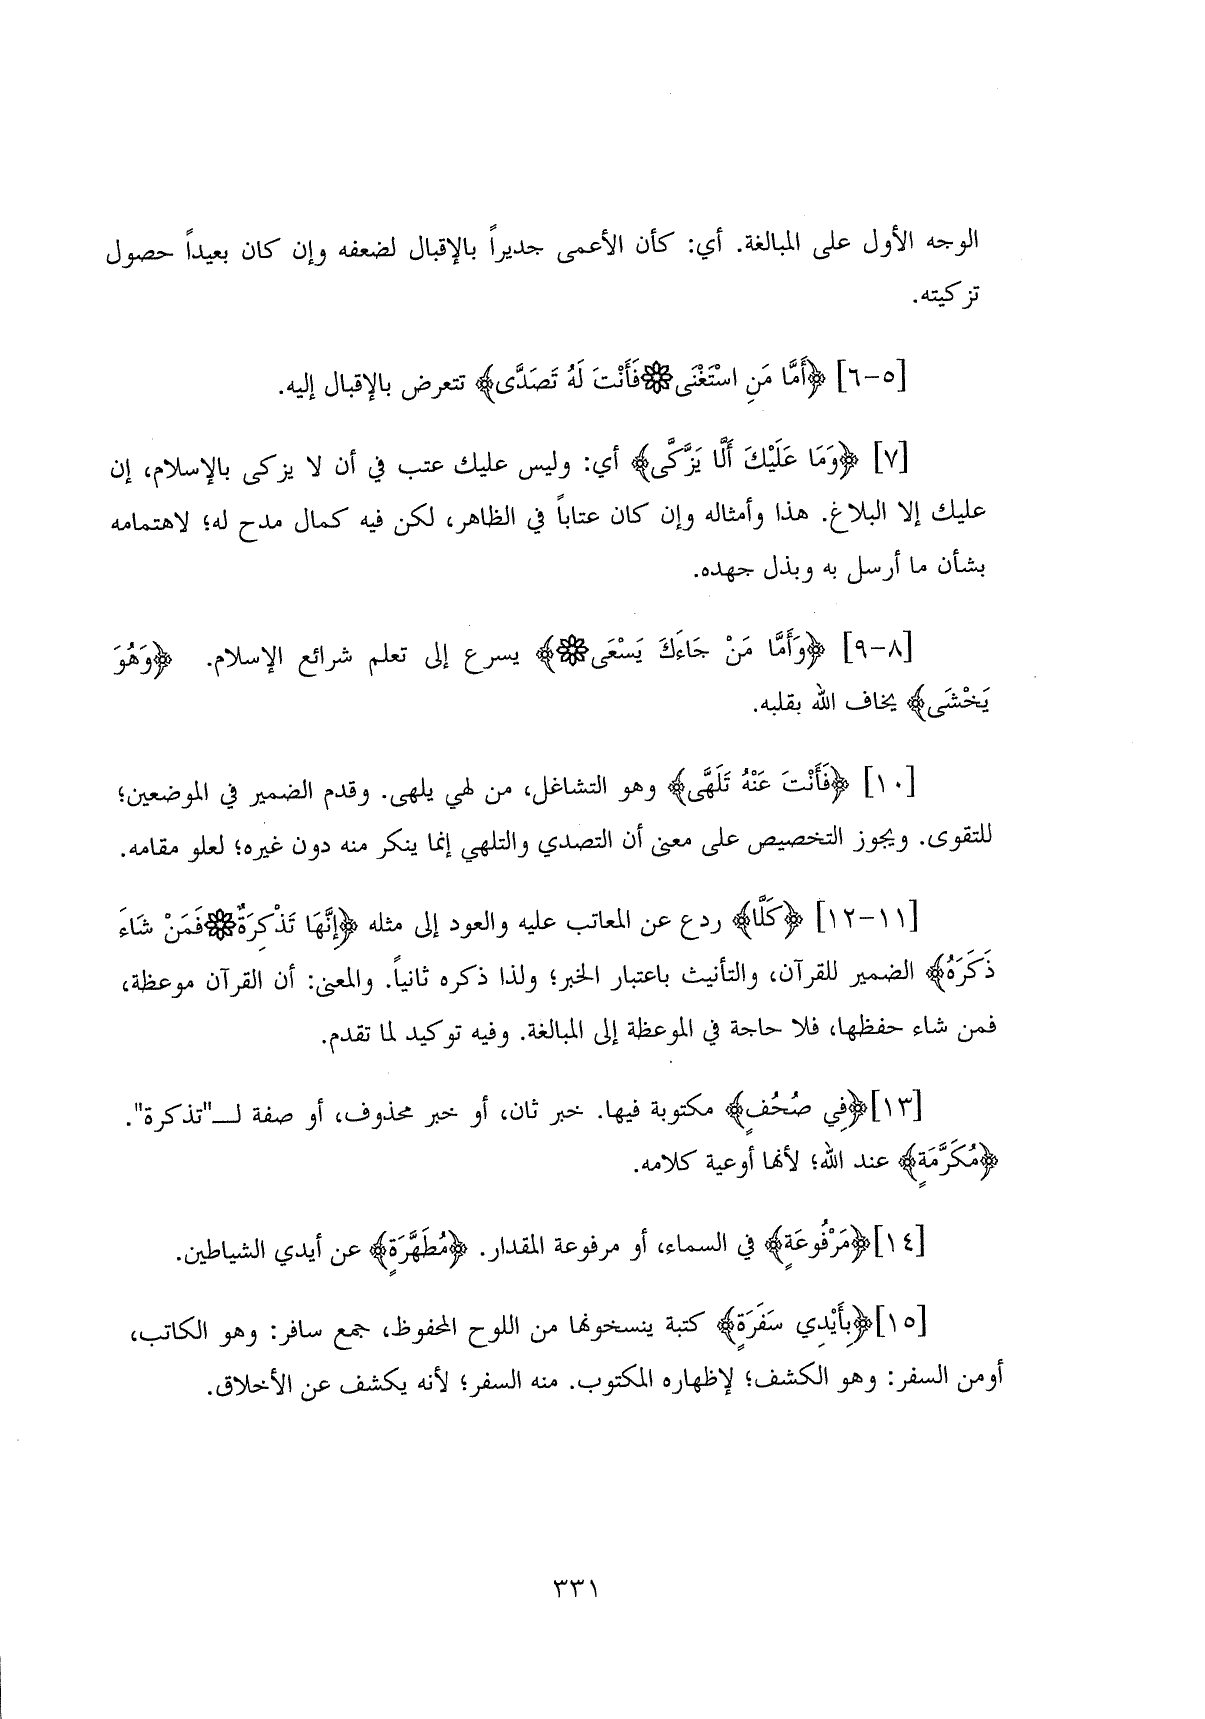 الوجه الأول على المبالغة. أي: كأن الأعمى جديراً بالإقبال لضعفه وإن كان بعيداً حصول
تزكيته.
[٥-٦] ﴿أَمَّا مَنِ اسْتَغْنَى۞فَأَنْتَ لَهُ تَصَدَّى﴾ تتعرض بالإقبال إليه.
[٧] ﴿وَمَا عَلَيْكَ أَلَّا يَزَّكَّى﴾ أي: وليس عليك عتب في أن لا يزكى بالإسلام، إن
عليك إلا البلاغ. هذا وأمثاله وإن كان عتاباً في الظاهر، لكن فيه كمال مدح له؛ لاهتمامه
بشأن ما أرسل به وبذل جهده.
[٨-٩] ﴿وَأَمَّا مَنْ جَاءَكَ يَسْعَى۞﴾ يسرع إلى تعلم شرائع الإسلام. ﴿وَهُوَ
يَخْشَى﴾ يخاف الله بقلبه.
[١٠] ﴿فَأَنْتَ عَنْهُ تَلَهَّى﴾ وهو التشاغل، من لهي يلهى. وقدم الضمير في الموضعين؛
للتقوى. ويجوز التخصيص على معنى أن التصدي والتلهي إنما ينكر منه دون غيره؛ لعلو مقامه.
[١١-١٢] ﴿كَلَّا﴾ ردع عن المعاتب عليه والعود إلى مثله ﴿إِنَّهَا تَذْكِرَةٌ۞فَمَنْ شَاءَ
ذَكَرَهُ﴾ الضمير للقرآن، والتأنيث باعتبار الخبر؛ ولذا ذكره ثانياً. والمعنى: أن القرآن موعظة،
فمن شاء حفظها، فلا حاجة في الموعظة إلى المبالغة. وفيه توكيد لما تقدم.
[١٣]﴿فِي صُحُفٍ﴾ مكتوبة فيها. خبر ثان، أو خبر محذوف، أو صفة لـــ"تذكرة".
﴿مُكَرَّمَةٍ﴾ عند الله؛ لأنها أوعية كلامه.
[١٤]﴿مَرْفُوعَةٍ﴾ في السماء، أو مرفوعة المقدار. ﴿مُطَهَّرَةٍ﴾ عن أيدي الشياطين.
[١٥]﴿بِأَيْدِي سَفَرَةٍ﴾ كتبة ينسخونها من اللوح المحفوظ، جمع سافر: وهو الكاتب،
أومن السفر: وهو الكشف؛ لإظهاره المكتوب. منه السفر؛ لأنه يكشف عن الأخلاق.
٣٣١